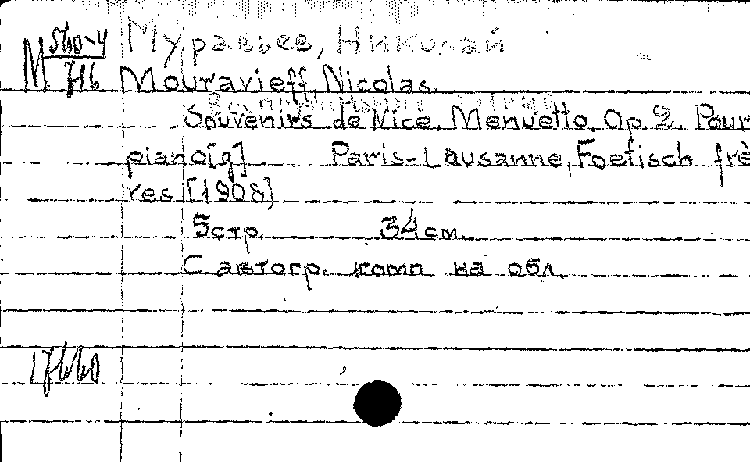 Муравьев, Николай
M 560-4
716
Mouravieff, Nicolas.
Souvenirs de Nice. Menuetto. Op 2. Pour
piano[g] Paris-Lausanne, Foetisch frè
res [1908]
5стр. 34см.
С автогр. комп на обл.
17660